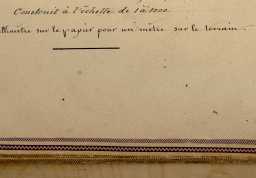 Construit à l'échelle de 1 à 1000
Millimètre sur le papier pour un mètre sur le terrain.